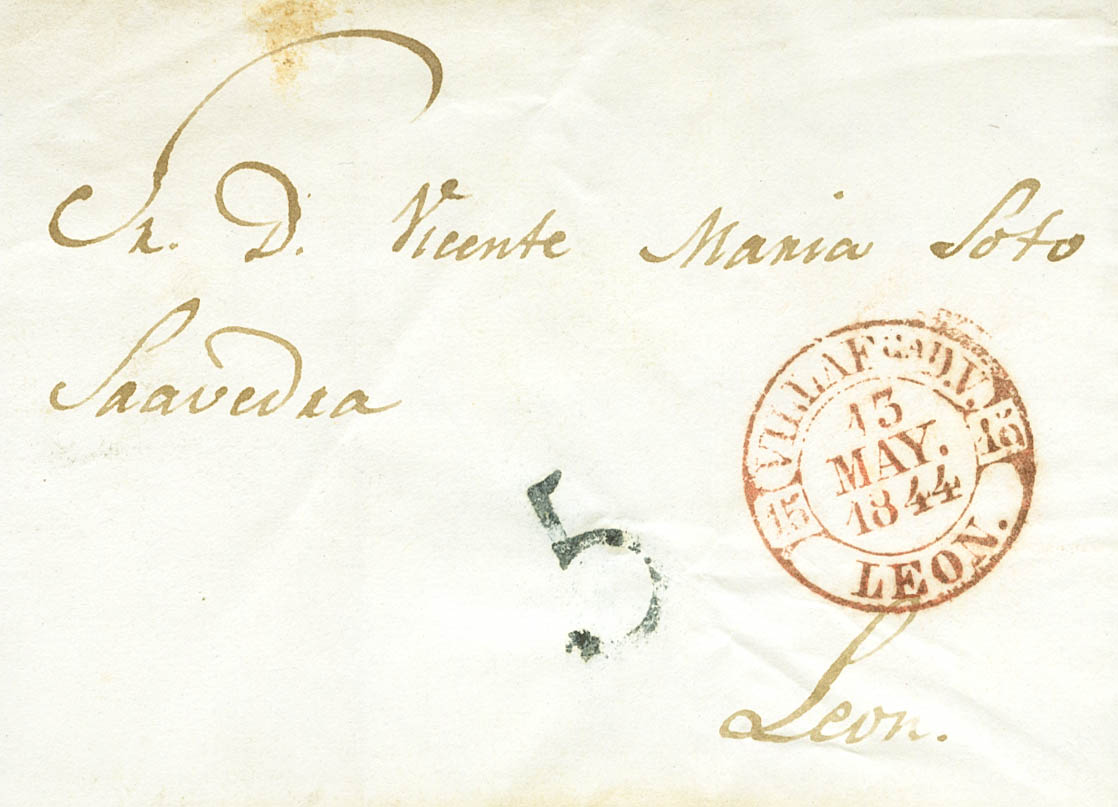 Sr. D. Vicente Maria Soto
Saavedra
VILLAFCA D.V.
15
15
13
MAY.
1844
LEON.
5
Leon.